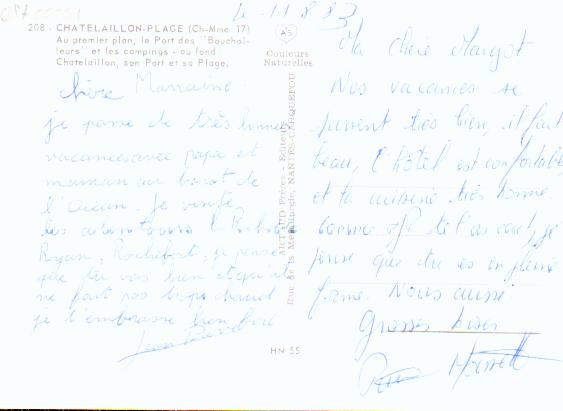 Le 11.8.83
208 - CHATELAILLON-PLAGE (Ch-Mme 17)
Au premier plan, le Port des "Bouchol-
leurs" et les campings - au fond
Chatelaillon, son Port et sa Plage.
Couleurs
Naturelles
ARTAUD Frères, Editeurs
Rue de la Métallurgie, NANTES-CARQUEFOU
Chère Marraine
je passe de très bonnes
vacances avec papa et
maman au bord de
l'Océan. Je visite
les alentours la Rochelle
Royan, Rochefort, je pense
que tu vas bien et qu'il
ne fait pas trop chaud
je t'embrasse bien fort
Ma Chère Margot
Nos vacances se
suivent très bien, il fait
beau, l'hôtel est confortable
et la cuisine très bonne.
tel as court, je
pense que tu es en pleine
forme. Nous aussi
Grosses bises
HN 55